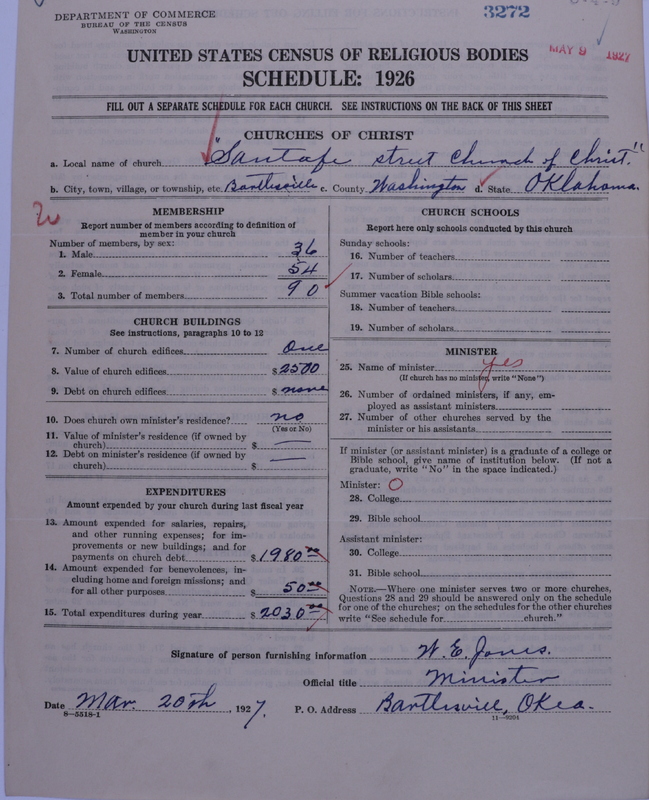 DEPARTMENT OF COMMERCE
BUREAU OF THE CENSUS
WASHINGTON
3272
MAY 9 1927
UNITED STATES CENSUS OF RELIGIOUS BODIES
SCHEDULE: 1926
FILL OUT A SEPARATE SCHEDULE FOR EACH CHURCH. SEE INSTRUCTIONS ON THE BACK OF THIS SHEET
CHURCHES OF CHRIST
a. Local name of church "Santafe street Church of Christ."
b. City, town, village, or township, etc. Bartlesville c. County Washington d. State Oklahoma.
MEMBERSHIP
Report number of members according to definition of
member in your church
Number of members, by sex:
1. Male 36
2. Female 54
3. Total number of members 90
CHURCH BUILDINGS
See instructions, paragraphs 10 to 12
7. Number of church edifices One
8. Value of church edifices $ 2500
9. Debt on church edifices $ none
10. Does church own minister's residence? no
(Yes or No)
11. Value of minister's residence (if owned by
church) $ —
12. Debt on minister's residence (if owned by
church) $ —
EXPENDITURES
Amount expended by your church during last fiscal year
13. Amount expended for salaries, repairs,
and other running expenses; for im-
provements or new buildings; and for
payments on church debt $ 1980 00
14. Amount expended for benevolences, in-
cluding home and foreign missions; and
for all other purposes $ 50 00
15. Total expenditures during year $ 2030 00
CHURCH SCHOOLS
Report here only schools conducted by this church
Sunday schools:
16. Number of teachers
17. Number of scholars
Summer vacation Bible schools:
18. Number of teachers
19. Number of scholars
MINISTER
25. Name of minister yes
(If church has no minister, write "None")
26. Number of ordained ministers, if any, em-
ployed as assistant ministers
27. Number of other churches served by the
minister or his assistants
If minister (or assistant minister) is a graduate of a college or
Bible school, give name of institution below. (If not a
graduate, write "No" in the space indicated.)
Minister: O
28. College
29. Bible school
Assistant minister:
30. College
31. Bible school
NOTE.—Where one minister serves two or more churches,
Questions 28 and 29 should be answered only on the schedule
for one of the churches; on the schedules for the other churches
write "See schedule for church."
Signature of person furnishing information W. E. Jones.
Official title Minister
Date Mar. 20th, 1927. P. O. Address Bartlesvill, Okla.
8—5518-1
11—9204